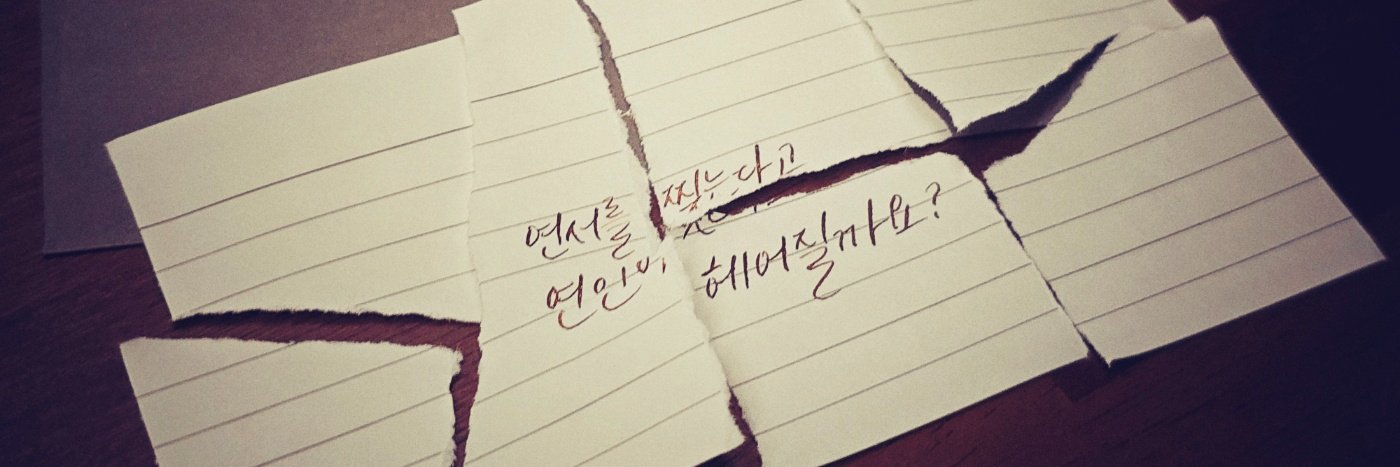 연서를 찢는다고
연인이 헤어질까요?